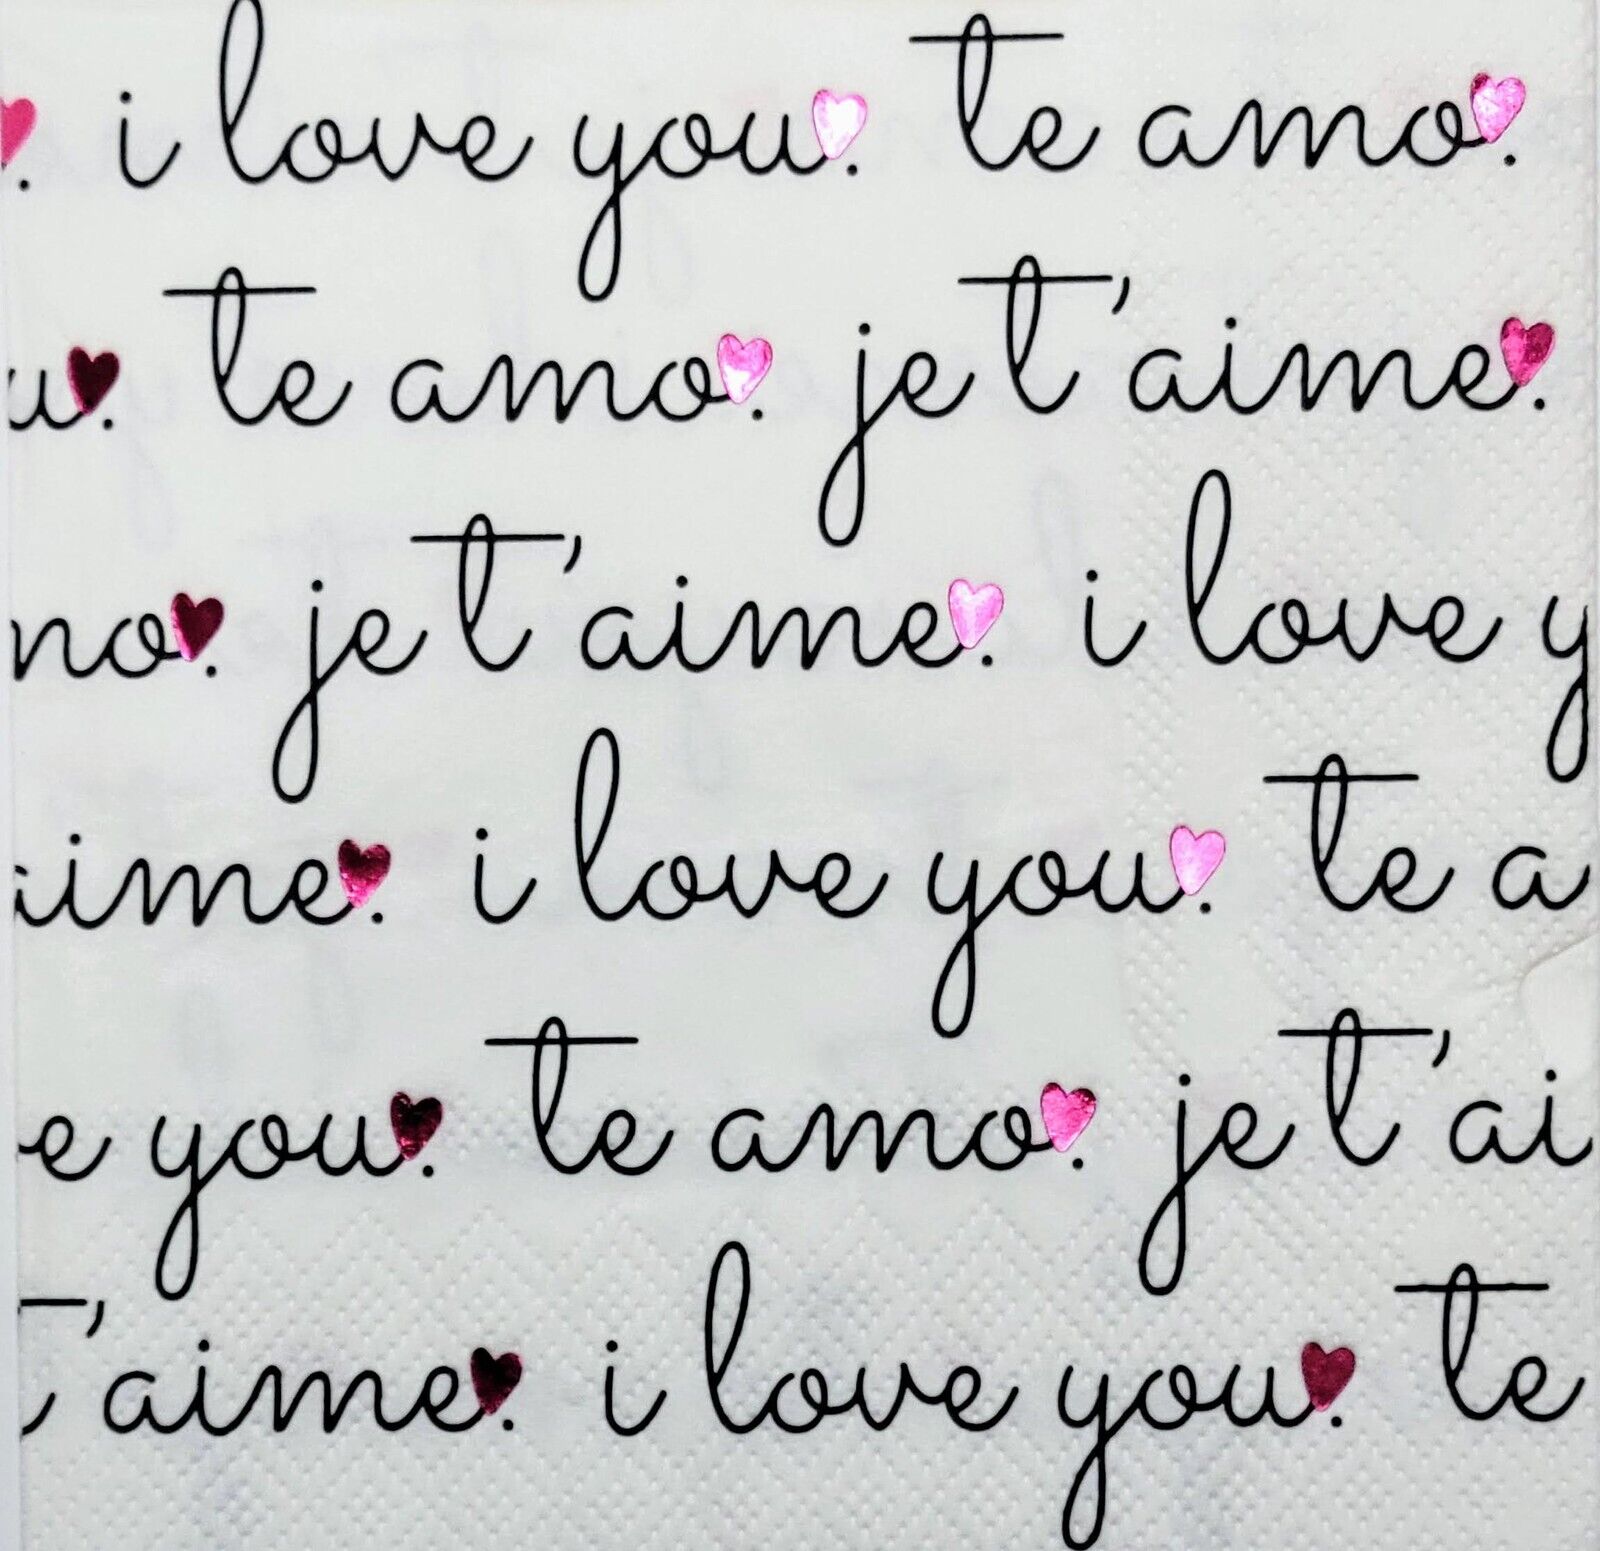 . i love you. te amo.
u. te amo. je t'aime.
mo. je t'aime. i love y
aime. i love you. te a
e you. te amo. je t'ai
t'aime. i love you. te